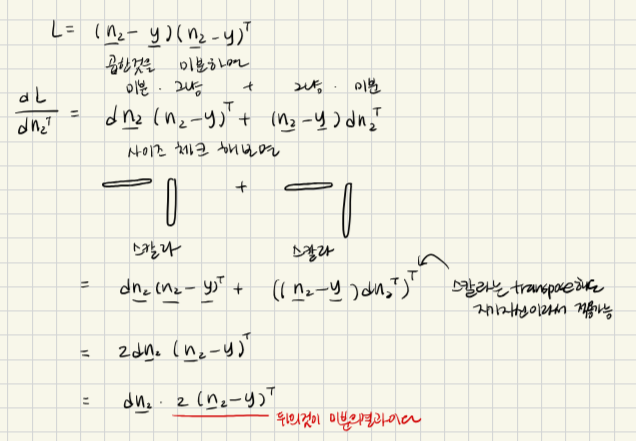 L = (n₂ - y)(n₂ - y)ᵀ
곱한것을 미분하여
미분 · 그냥 + 그냥 · 미분
dL/dn₂ᵀ = dn₂ (n₂ - y)ᵀ + (n₂ - y) dn₂ᵀ
사이즈 체크 해보면
+
스칼라 스칼라
= dn₂ (n₂ - y)ᵀ + ((n₂ - y) dn₂ᵀ)ᵀ 스칼라는 transpose해도
자기자신이라서 적용가능
= 2dn₂ (n₂ - y)ᵀ
= dn₂ · 2 (n₂ - y)ᵀ
뒤의것이 미분의결과이다